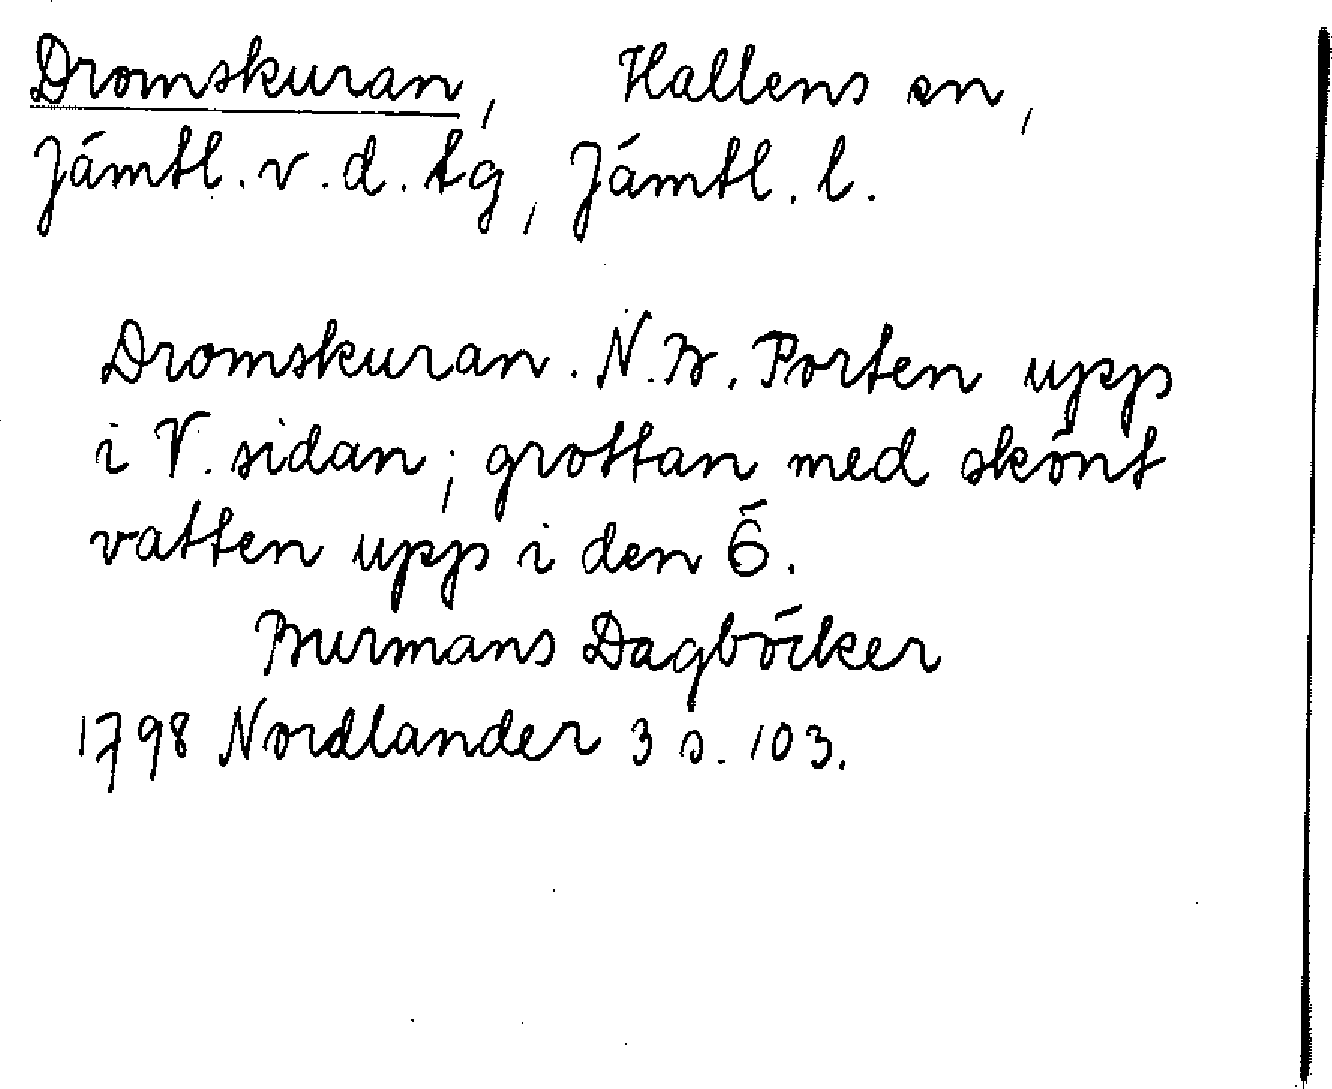 Dromskuran, Hallens sn,
Jämtl. v. d. tg, Jämtl. l.
Dromskuran. N.B. Porten upp
i V. sidan; grottan med skönt
vatten upp i den Ö.
Burmans Dagböcker
1798 Nordlander 3 s. 103.